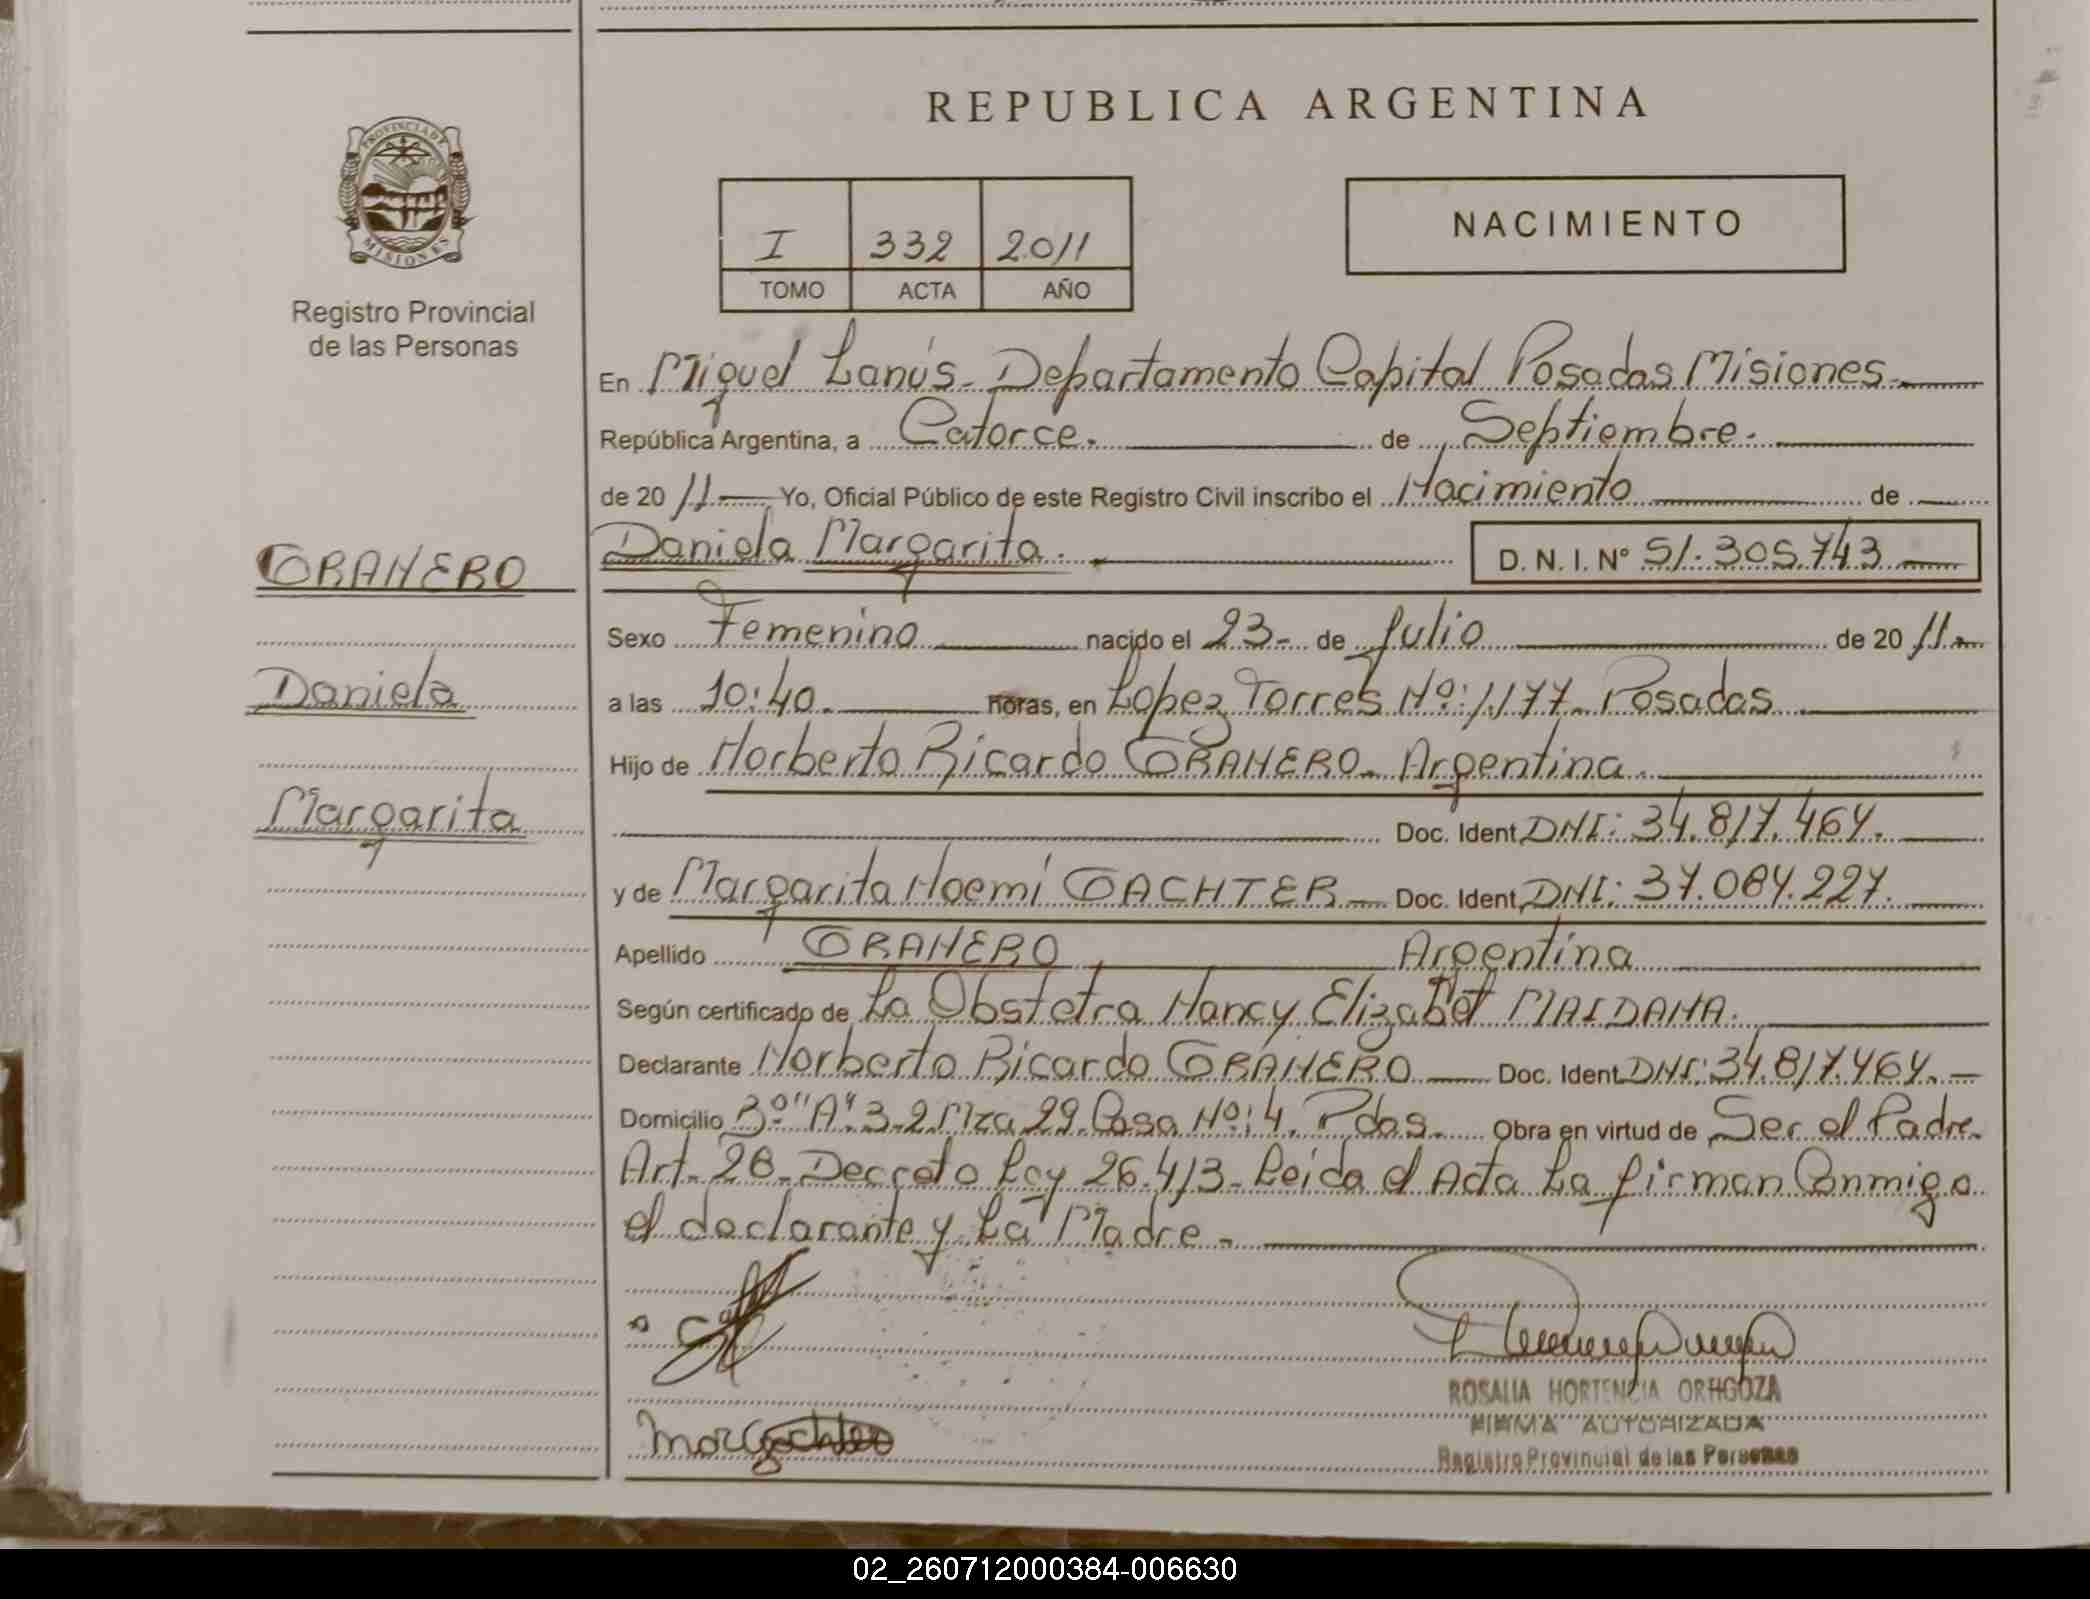 REPUBLICA ARGENTINA
PROVINCIA DE
MISIONES
Registro Provincial
de las Personas
I 332 2011
TOMO ACTA AÑO
NACIMIENTO
En Miguel Lanús - Departamento Capital Posadas Misiones -
República Argentina, a Catorce. de Septiembre.
de 20 11 Yo, Oficial Público de este Registro Civil inscribo el Nacimiento de
Daniela Margarita. D. N. I. N° 51.305.743
GRANERO
Daniela
Margarita
Sexo Femenino nacido el 23 - de Julio de 20 11
a las 10:40. horas, en Lopez Torres Nº: 1177 - Posadas
Hijo de Norberto Ricardo GRANERO - Argentina.
Doc. Ident DNI: 34.817.464.
y de Margarita Noemí GACHTER - Doc. Ident DNI: 37.084.227.
Apellido GRANERO Argentina
Según certificado de La Obstetra Nancy Elizabet MAIDANA.
Declarante Norberto Ricardo GRANERO Doc. Ident DNI: 34.817.464. -
Domicilio Bº "A" 3-2 Mza 29 Casa Nº: 4. Pdas. Obra en virtud de Ser el Padre
Art. 28 - Decreto Ley 26.413 - Leida el Acta La firman Conmigo
el declarante y La Madre. -
ROSALIA HORTENCIA ORTIGOZA
FIRMA AUTORIZADA
Registro Provincial de las Personas
02_260712000384-006630